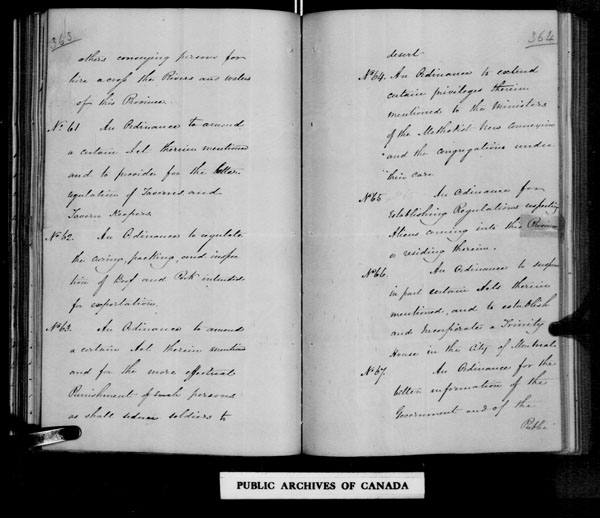 363.
others conveying persons for
hire across the Rivers and waters
of this Province.
No. 61 An Ordinance to amend
a certain Act therein mentioned
and to provide for the better
regulation of Taverns and
Tavern Keepers.
No. 62. An Ordinance to regulate
the curing, packing, and inspec
tion of Beef and Pork intended
for exportation.
No. 63. An Ordinance to amend
a certain Act therein mentioned
and for the more effectual
Punishment of such persons
as shall seduce soldiers to
364
desert
No. 64. An Ordinance to extend
certain privileges therein
mentioned to the Ministers
of the Methodist New Connexion
and the congregations under
their care
No. 65 An Ordinance for
Establishing Regulations respecting
Aliens coming into this Province
or residing therein.
No. 66. An Ordinance to suspend
in part certain Acts therein
mentioned, and to establish
and Incorporate a Trinity
House in the City of Montreal
No. 67. An Ordinance for the
better information of the
Government and of the
Public
PUBLIC ARCHIVES OF CANADA